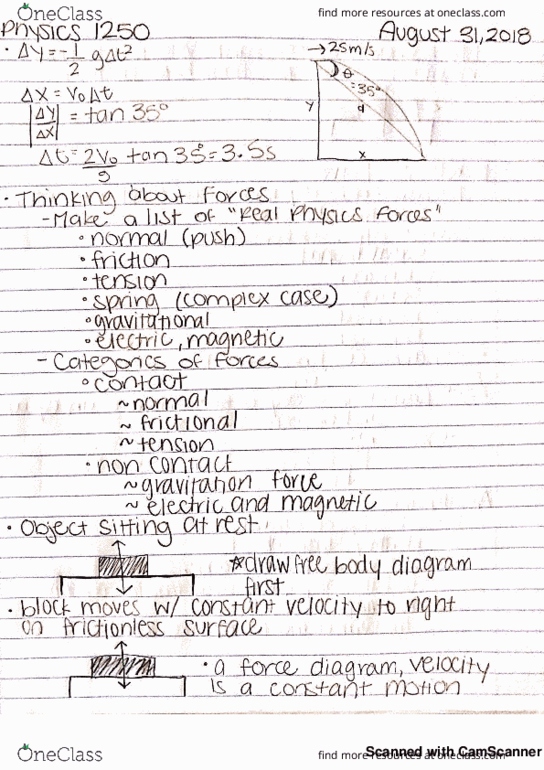 OneClass
find more resources at oneclass.com
Physics 1250
August 31, 2018
· Δy = -1/2 gΔt²
→ 25m/s
θ = 35°
y
d
x
Δx = V₀Δt
|Δy/Δx| = tan 35°
Δt = 2V₀/g tan 35° = 3.5s
· Thinking about forces
- Make a list of "Real Physics Forces"
· normal (push)
· friction
· tension
· spring (complex case)
· gravitational
· electric, magnetic
- Categories of forces
· contact
~ normal
~ frictional
~ tension
· non contact
~ gravitation force
~ electric and magnetic
· Object sitting at rest
*draw free body diagram
first
· block moves w/ constant velocity to right
on frictionless surface
· a force diagram, velocity
is a constant motion
OneClass
find more resources at oneclass.com
Scanned with CamScanner